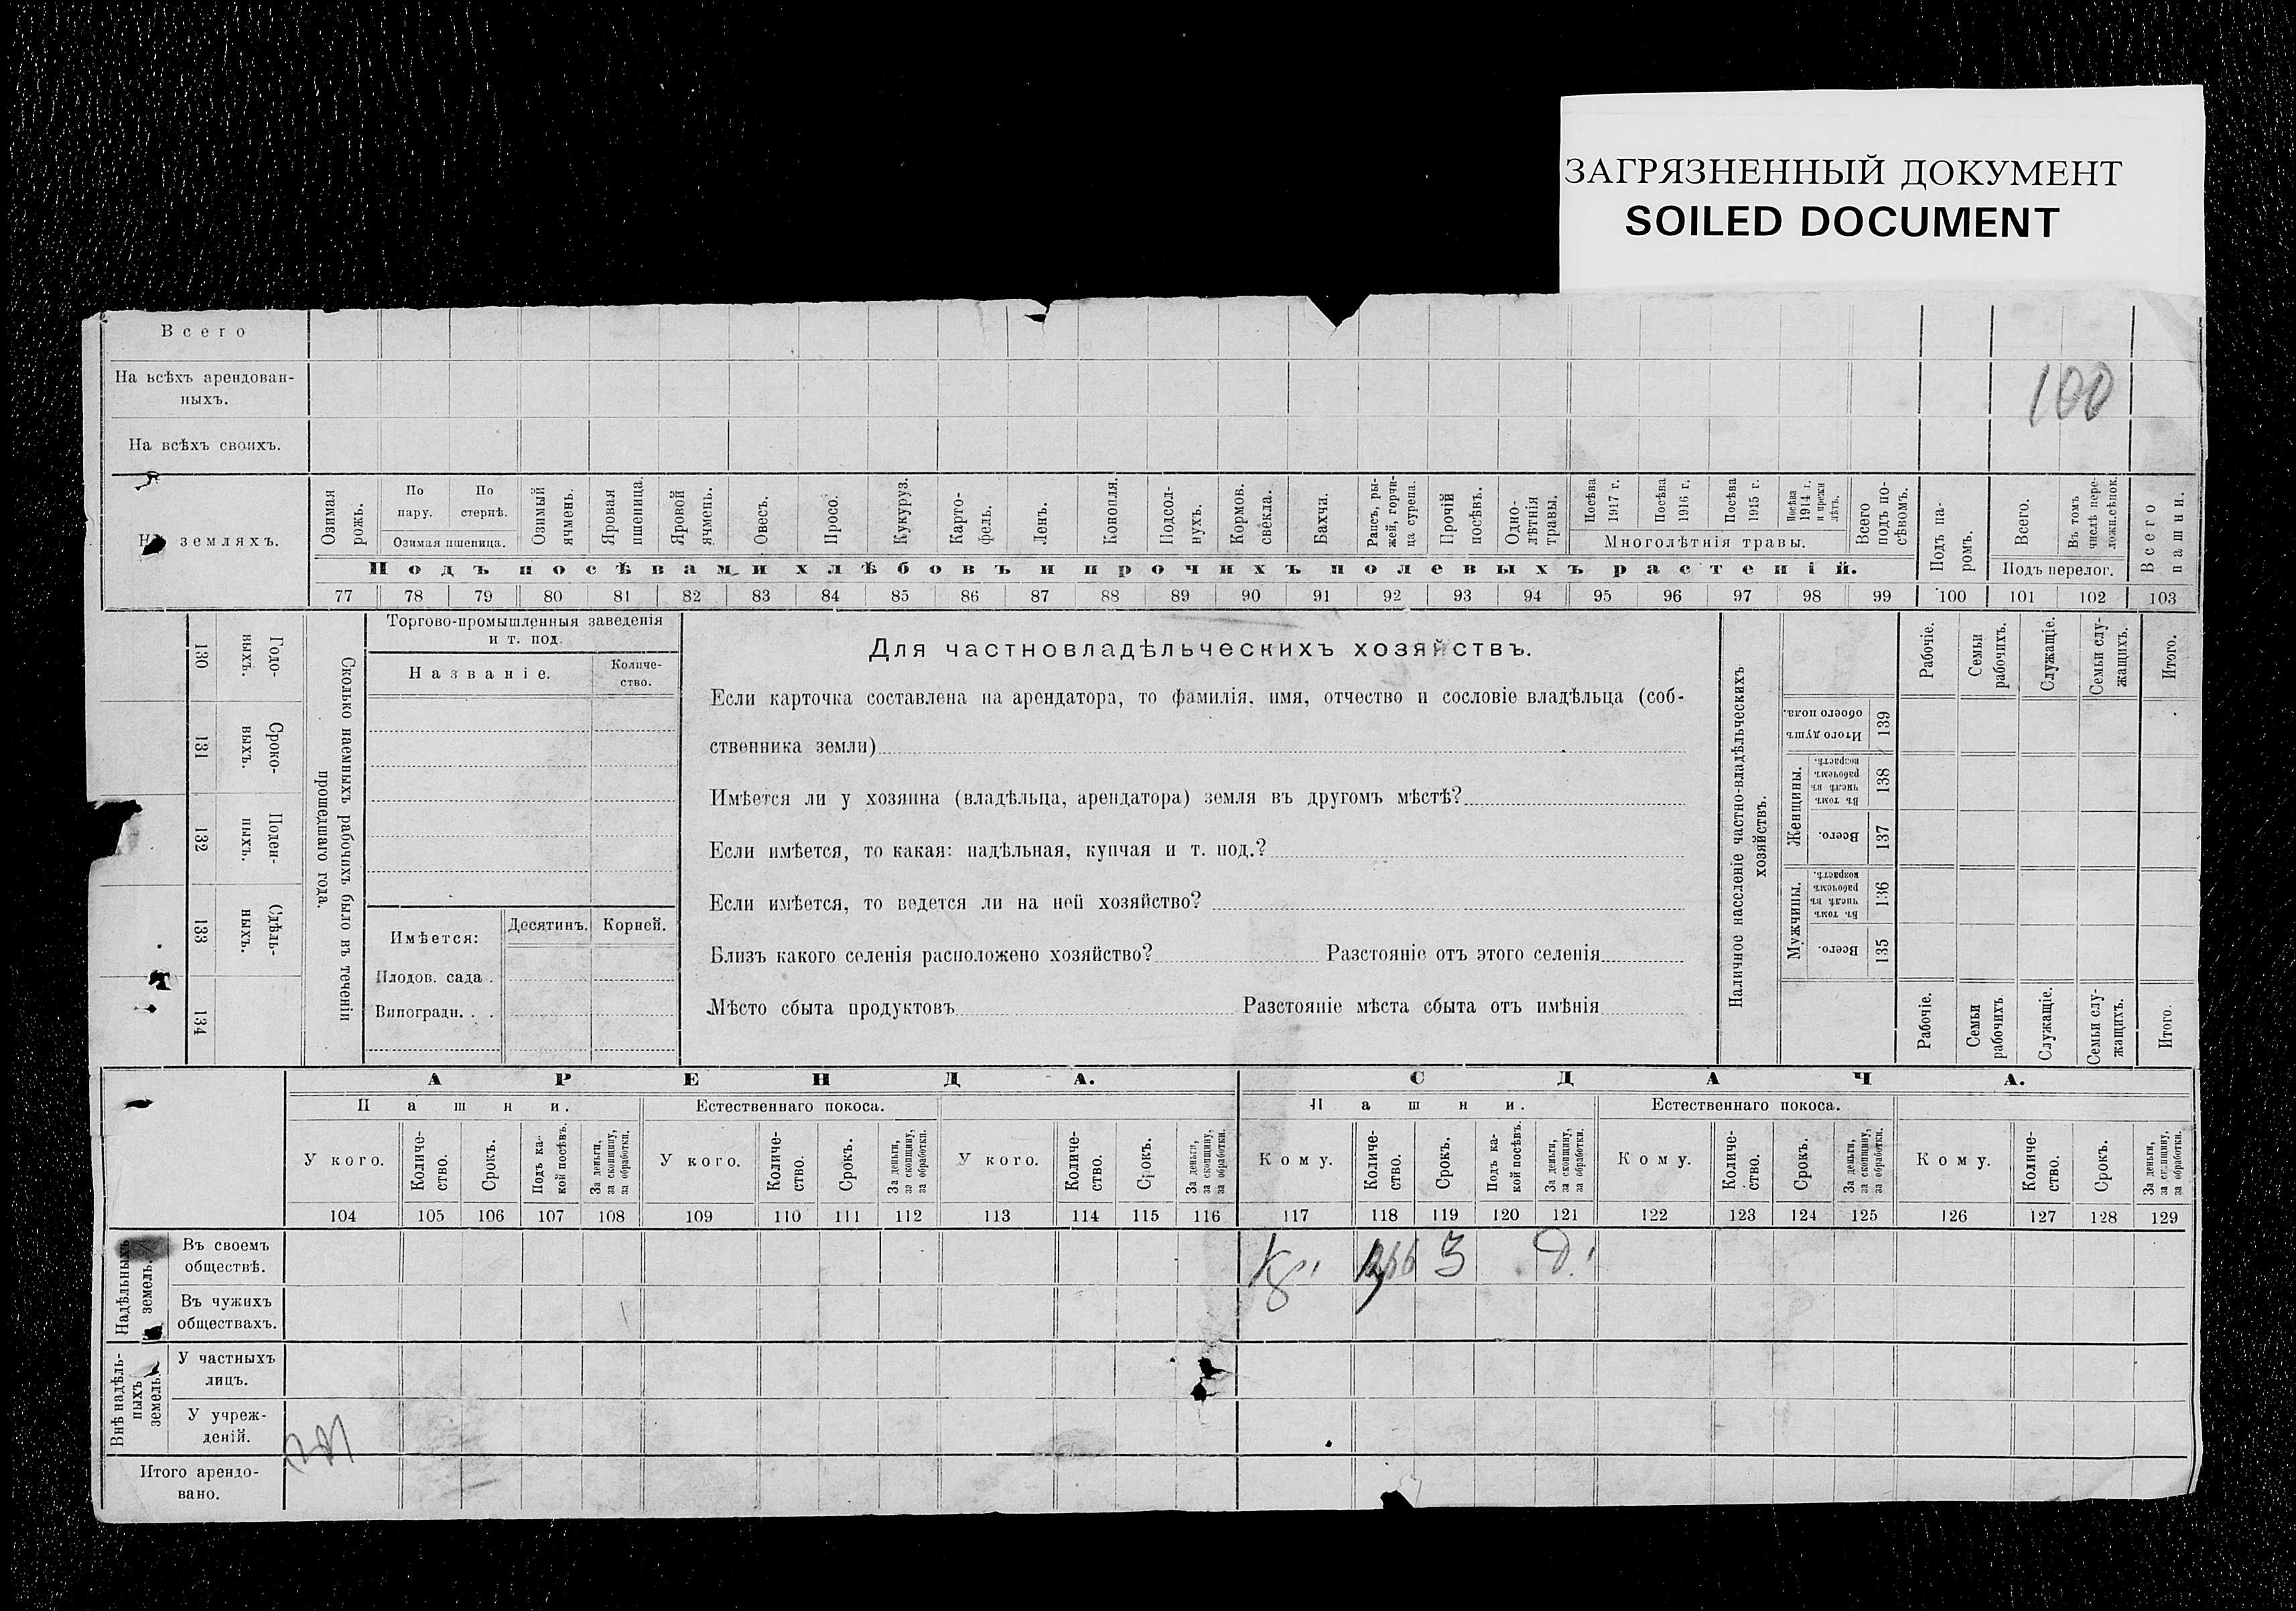 ЗАГРЯЗНЕННЫЙ ДОКУМЕНТ
SOILED DOCUMENT
Всего
На всѣхъ арендован-
ныхъ.
100
На всѣхъ своихъ.
На земляхъ.
Озимая рожь.
По пару.
По стернѣ.
Озимая пшеница.
Озимый ячмень.
Яровая пшеница.
Яровой ячмень.
Овесъ.
Просо.
Кукуруз.
Карто-
фель.
Ленъ.
Конопля.
Подсол-
нухъ.
Кормов. свекла.
Бахчи.
Рапсъ, ры-
жей, горчи-
ца сурепа.
Прочій посѣвъ.
Одно-
лѣтнія травы.
Посѣва 1917 г.
Посѣва 1916 г.
Посѣва 1915 г.
Посѣва 1914 г. и прежн лѣтъ.
Многолѣтнія травы.
Всего подъ по-
сѣвомъ.
Подъ па-
ромъ.
Всего.
Въ томъ числѣ пере-
ложн.сѣнок.
Подъ перелог.
Всего пашни.
Подъ посѣвами хлѣбовъ и прочихъ полевыхъ растеній.
77 78 79 80 81 82 83 84 85 86 87 88 89 90 91 92 93 94 95 96 97 98 99 100 101 102 103
130
Годо-
выхъ.
131
Сроко-
ныхъ.
132
Поден-
ныхъ.
133
Сдѣль-
ныхъ.
134
Сколько наемныхъ рабочихъ было въ теченіи
прошедшаго года.
Торгово-промышленныя заведенія
и т. под.
Названіе.
Количе-
ство.
Имѣется:
Десятинъ.
Корней.
Плодов. сада .
Виноградн. . .
Для частновладѣльческихъ хозяйствъ.
Если карточка составлена на арендатора, то фамилія, имя, отчество и сословіе владѣльца (соб-
ственника земли)
Имѣется ли у хозяина (владѣльца, арендатора) земля въ другомъ мѣстѣ?
Если имѣется, то какая: надѣльная, купчая и т. под.?
Если имѣется, то ведется ли на ней хозяйство?
Близъ какого селенія расположено хозяйство? Разстояніе отъ этого селенія
Мѣсто сбыта продуктовъ Разстояніе мѣста сбыта отъ имѣнія
Наличное населеніе частно-владѣльческихъ
хозяйствъ.
Рабочіе.
Семьи рабочихъ.
Служащіе.
Семьи слу-
жащихъ.
Итого.
Итого душъ обоего пола.
139
Женщины.
Въ томъ числѣ въ рабочемъ возрастѣ.
138
Всего.
137
Мужчины.
Въ томъ числѣ въ рабочемъ возрастѣ.
136
Всего.
135
Рабочіе.
Семьи рабочихъ
Служащіе.
Семьи слу-
жащихъ.
Итого.
АРЕНДА.
СДАЧА.
Пашни.
Естественнаго покоса.
Пашни.
Естественнаго покоса.
У кого.
Количе-
ство.
Срокъ.
Подъ ка-
кой посѣвъ.
За деньги, за скопщину, за обработки.
У кого.
Количе-
ство.
Срокъ.
За деньги, за скопщину, за обработки.
У кого.
Количе-
ство.
Срокъ.
За деньги, за скопщину, за обработки.
Кому.
Количе-
ство.
Срокъ.
Подъ ка-
кой посѣвъ.
За деньги, за скопщину, за обработки.
Кому.
Количе-
ство.
Срокъ.
За деньги, за скопщину, за обработки.
Кому.
Количе-
ство.
Срокъ.
За деньги, за скопщину, за обработки.
104 105 106 107 108 109 110 111 112 113 114 115 116 117 118 119 120 121 122 123 124 125 126 127 128 129
Надѣльныхъ земель.
Въ своемъ
обществѣ.
3
Д.
Въ чужихъ
обществахъ.
Внѣ надѣль-
ныхъ земель.
У частныхъ
лицъ.
У учреж-
деній.
Итого арендо-
вано.